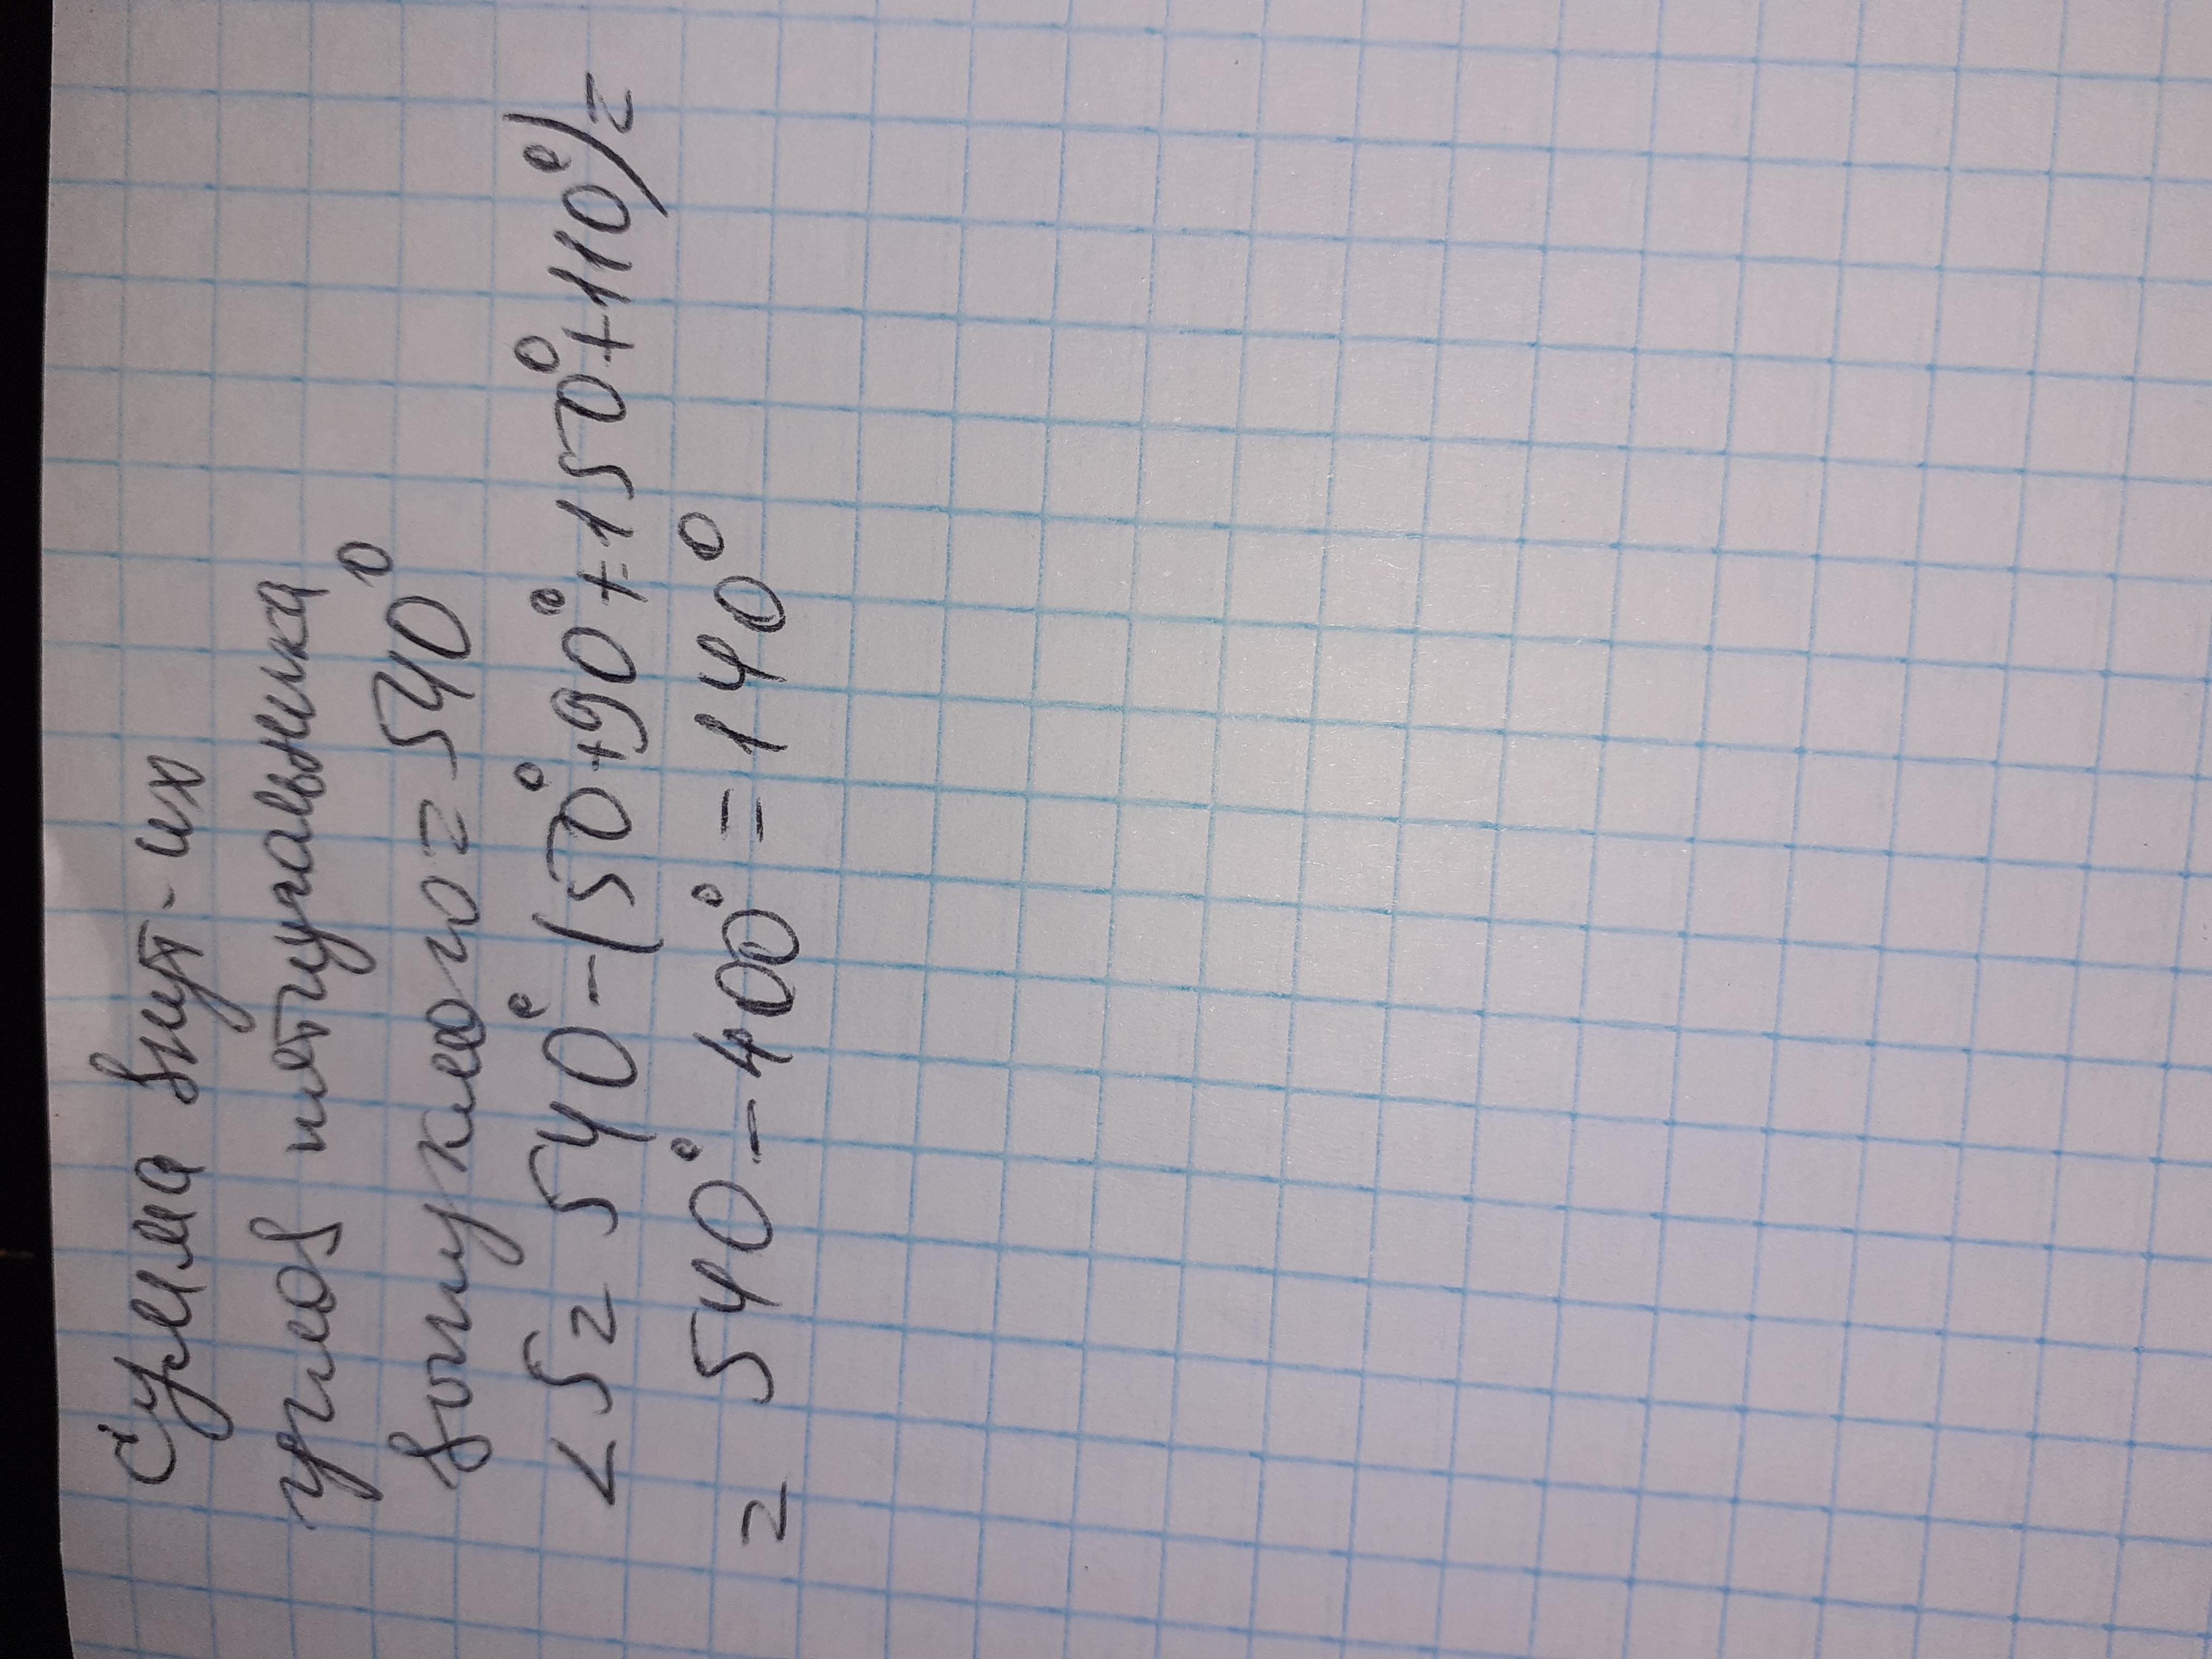 Сумма внут-их
углов пятиугольника
выпуклого = 540°
∠5 = 540° - (50° + 90° + 150° + 110°) =
= 540° - 400° = 140°